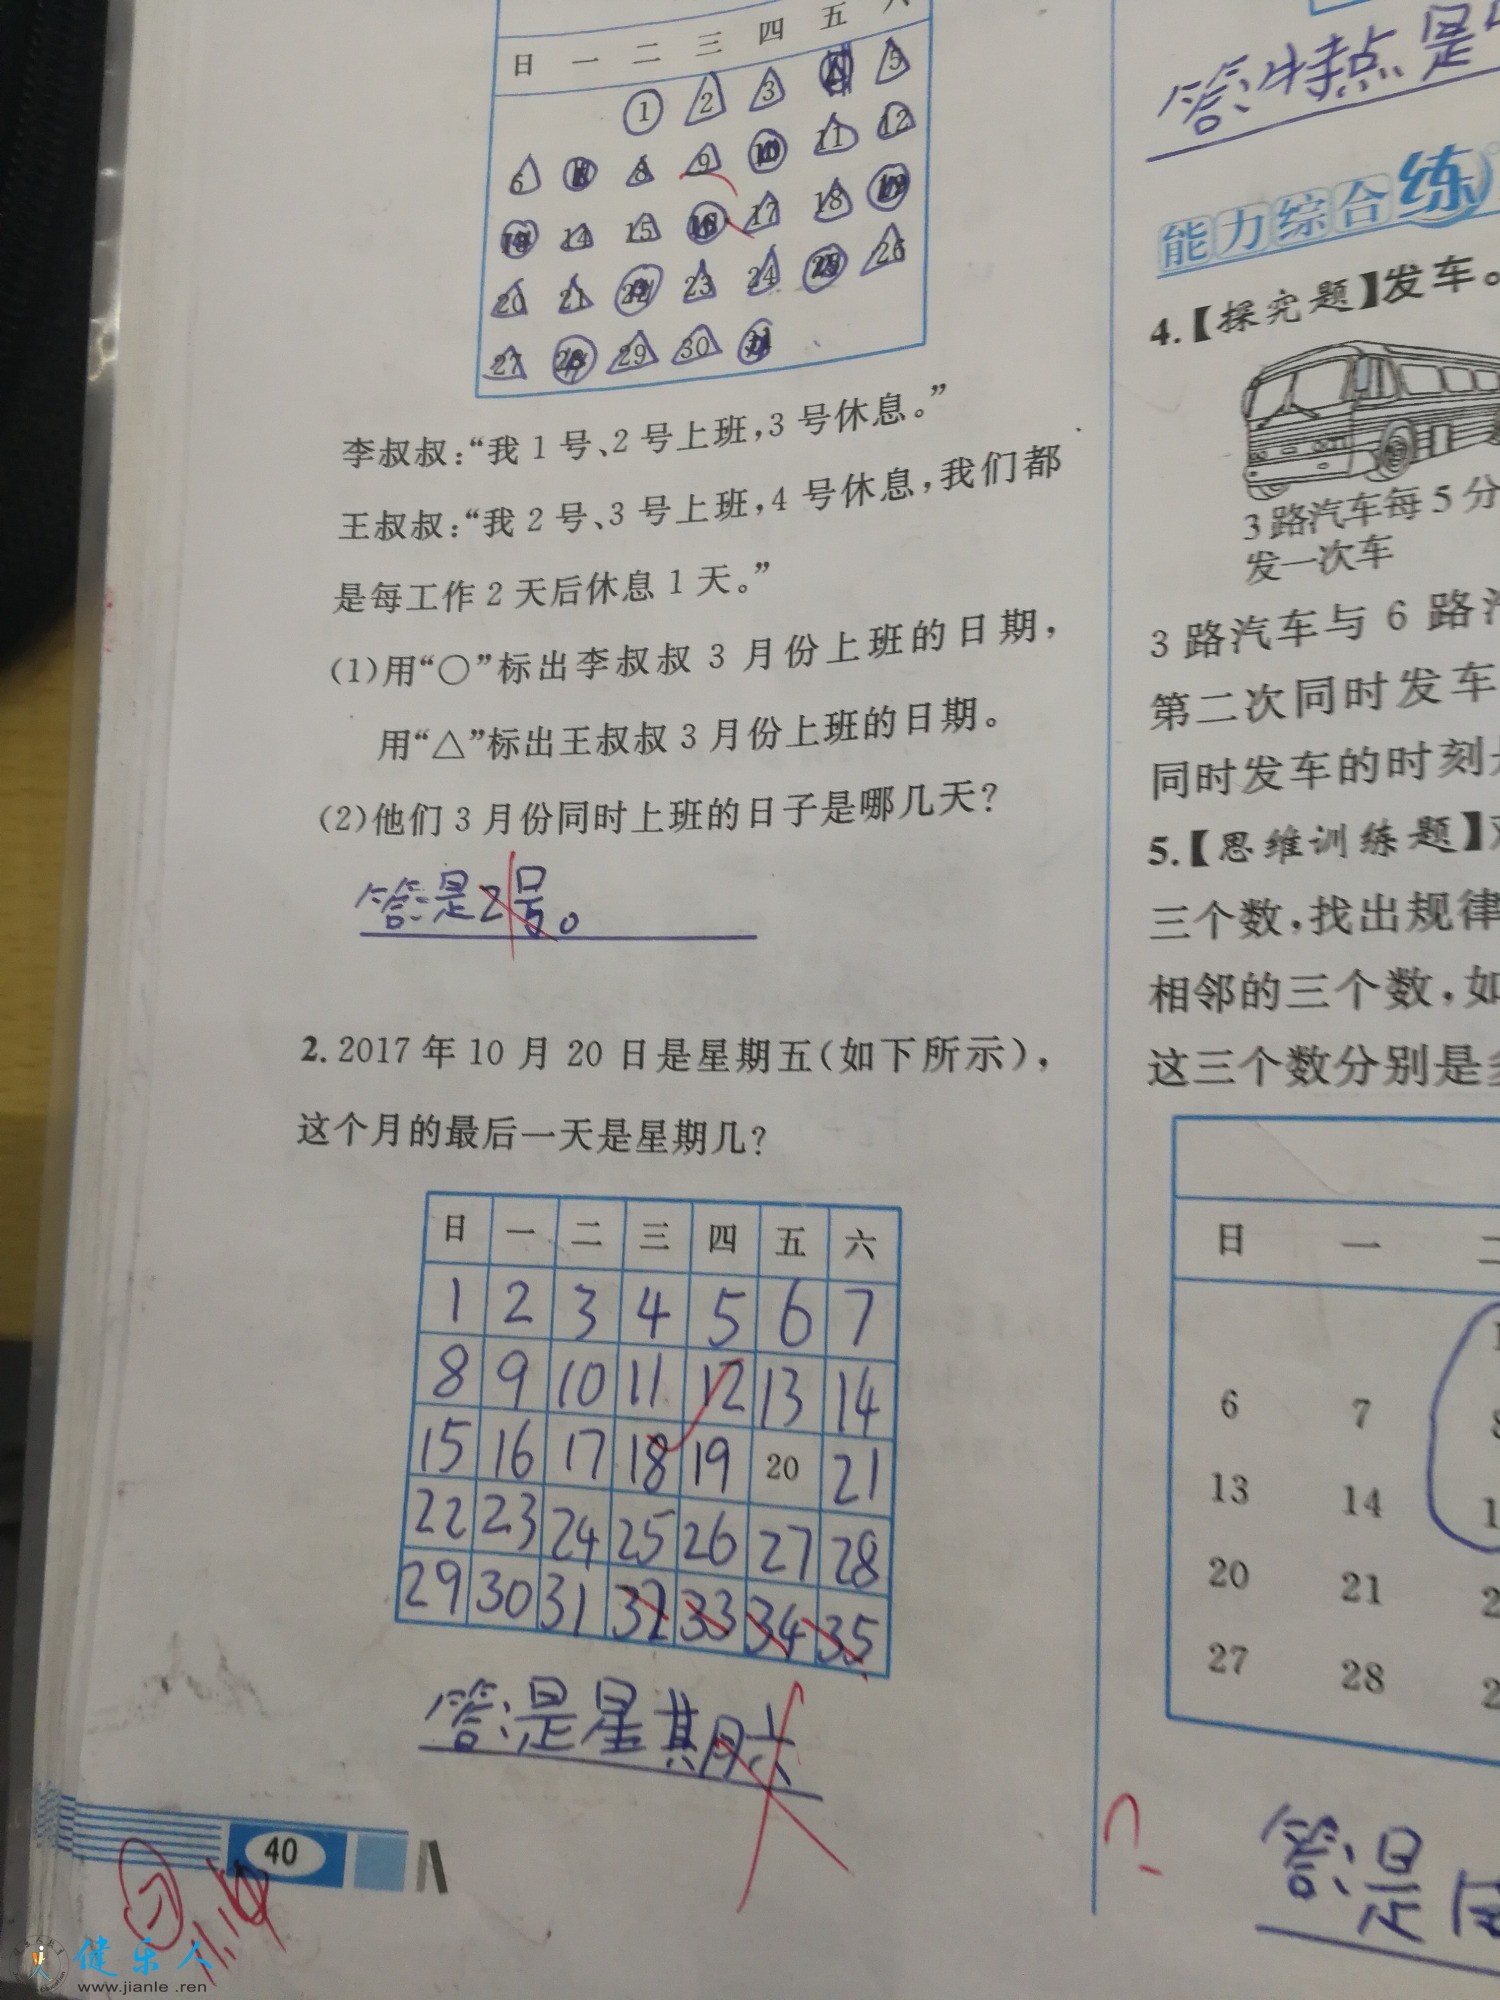 日 一 二 三 四 五 六
1 2 3 5
6 8 9 10 11 12
14 15 16 17 18 19
20 21 22 23 24 25 26
27 28 29 30 31
李叔叔：“我1号、2号上班，3号休息。”
王叔叔：“我2号、3号上班，4号休息，我们都
是每工作2天后休息1天。”
(1)用“○”标出李叔叔3月份上班的日期，
用“△”标出王叔叔3月份上班的日期。
(2)他们3月份同时上班的日子是哪几天？
答：是2号。
2. 2017年10月20日是星期五（如下所示），
这个月的最后一天是星期几？
日 一 二 三 四 五 六
1 2 3 4 5 6 7
8 9 10 11 12 13 14
15 16 17 18 19 20 21
22 23 24 25 26 27 28
29 30 31 32 33 34 35
答：是星期六
40
11.14
答：特点是
能力综合练
4.【探究题】发车。
3路汽车每5分
发一次车
3路汽车与6路汽
第二次同时发车
同时发车的时刻是
5.【思维训练题】
三个数，找出规律
相邻的三个数，如
这三个数分别是多
日 一 二
6 7
13 14
20 21
27 28
?
答：是
健乐人
www.jianle.ren